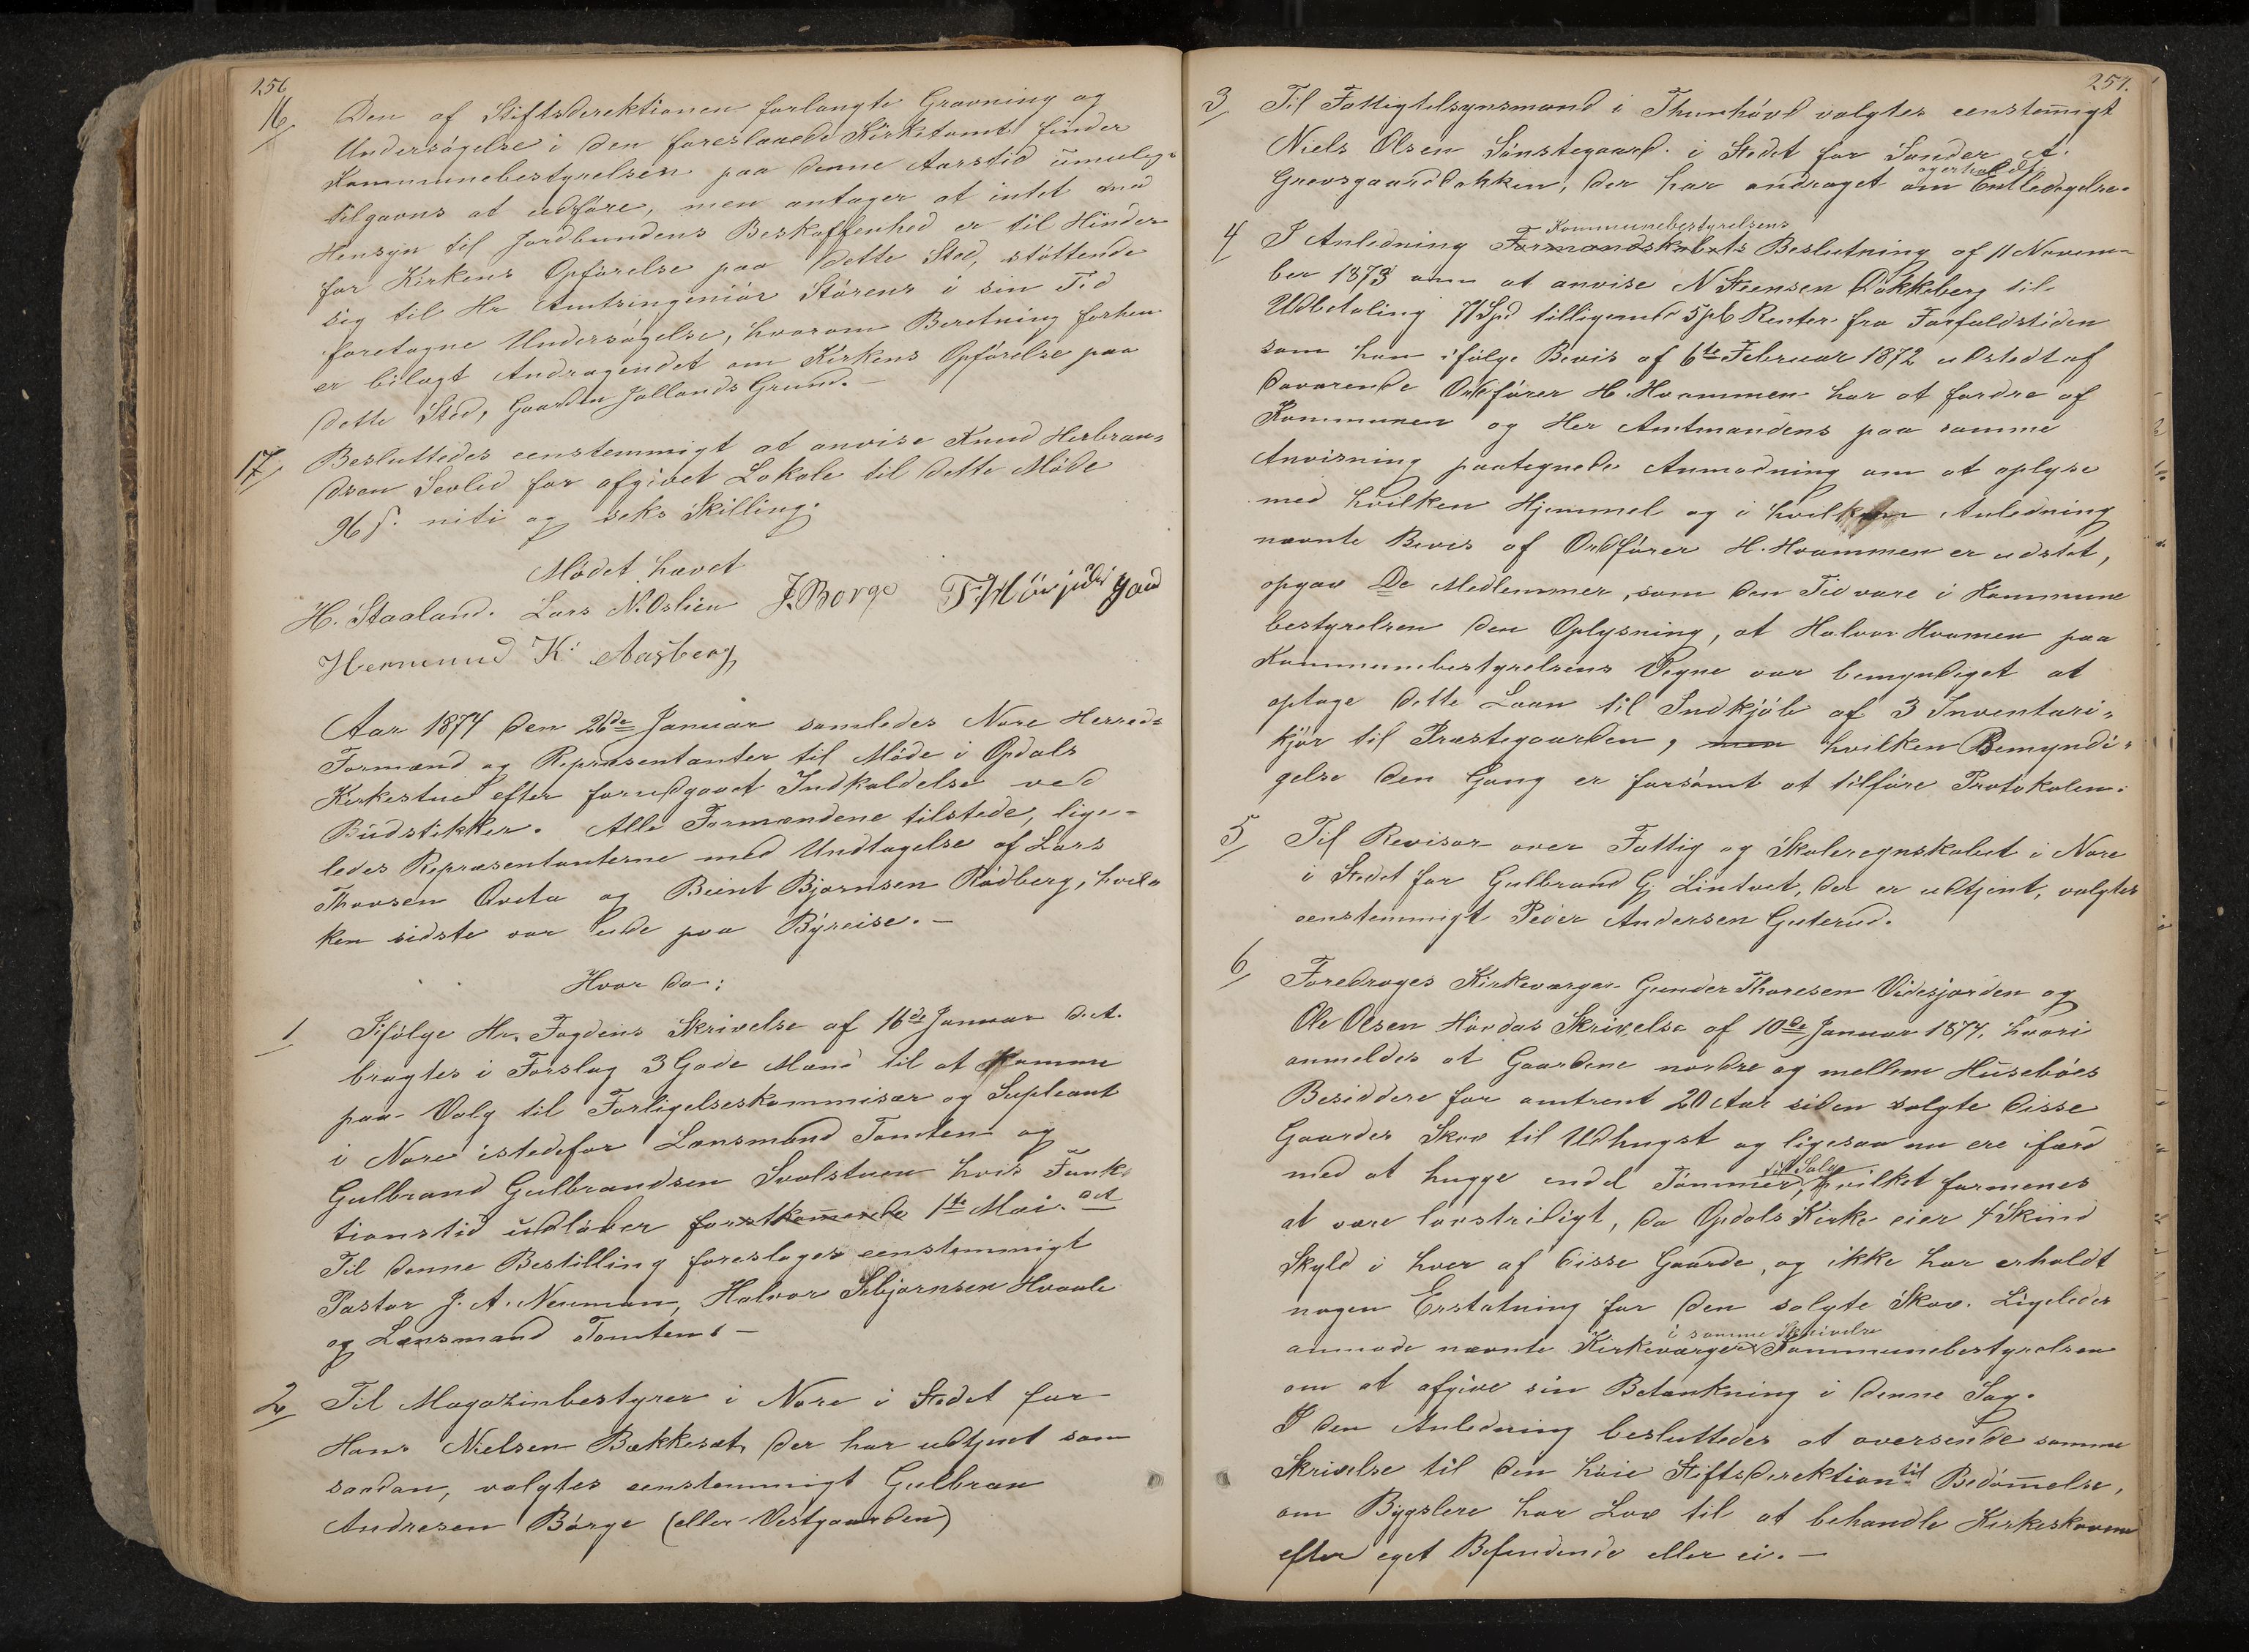 256
16/ Den af Stiftsdirektionen forlangte Gravning og
Undersøgelse i den foreslaaede Kirketomt finder
Kommunebestyrelsen paa denne Aarstid umulig
tilgavns at udføre, men antager at intet med
Hensyn til Jordbundens Beskaffenhed er til Hinder
for Kirkens Opførelse paa dette Sted, støttende
sig til Hr Amtsingeniør Størens i sin Tid
foretagne Undersøgelse, hvorom Beretning forhen
er bilagt Andragendet om Kirkens Opførelse paa
dette Sted, Gaarden Jøllands Grund. —
17/ Besluttedes eenstemmigt at anvise Knud Herbran-
dsen Sevlid for afgivet Lokale til dette Møde
96 s. niti og seks Skilling.
Mødet hævet
H. Staaland. Lars N. Oslien J. Borge
Hermund K. Aasberg
Aar 1874 den 26de Januar samledes Nore Herreds
Formænd og Repræsentanter til Møde i Opdals
Kirkestue efter forudgaaet Indkaldelse ved
Budstikker. Alle Formændene tilstede, lige-
ledes Repræsentanterne med Undtagelse af Lars
Thorsen Qveta og Beint Bjørnsen Rødberg, hvil-
ken sidste var ude paa Byreise. —
Hvor da:
1/ Ifølge Hr. Fogdens Skrivelse af 16de Januar d. A.
bragtes i Forslag 3 Gode Mænd til at komme
paa Valg til Forligelseskommisær og Supleant
i Nore istedetfor Lensmand Tomten og
Gulbrand Gulbrandsen Svalstuen hvis Funk-
tionstid udløber førstkommende 1ste Mai. d A
Til denne Bestilling foreslages eenstemmigt
Pastor J. A. Neuman, Halvor Sebjørnsen Hvaale
og Lensmand Tomten. —
2/ Til Magazinbestyrer i Nore i Stedet for
Hans Nielsen Bækkesæt, der har udtjent som
saadan, valgtes eenstemmigt Gulbran
Andresen Børge (eller Vestgaarden)
257.
3/ Til Fattigtilsynsmand i Thunhøvd valgtes eenstemigt
Niels Olsen Sønstegaard. i Stedet for Sander A.
og erholdt
Grøvsgaardbakken, der har andraget om Entledigelse.
Kommunebestyrelsens
4/ I Anledning Formandskabets Beslutning af 11 Novem-
ber 1873 om at anvise N Steensen Dokkeberg til
Udbetaling 71 Spd tilligemed 5 pCt Renter fra Forfaldstiden
som han ifølge Bevis af 6te Februar 1872 udstedt af
daværende Ordfører H. Hvammen har at fordre af
Kommunen og Her Amtmandens paa samme
Anvisning paategnede Anmodning om at oplyse
med hvilken Hjemmel og i hvilken Anledning
nævnte Bevis af Ordfører H. Hvammen er udstet,
opgav De Medlemmer, som den Tid vare i Kommune
bestyrelsen den Oplysning, at Halvor Hvamen paa
Kommunebestyrelsens Vegne var bemyndiget at
optage dette Laan til Indkjøb af 3 Inventari-
kjør til Præstegaarden, men hvilken Bemyndi-
gelse den Gang er forsømt at tilføre Protokolen.
5/ Til Revisor over Fattig og Skoleregnskabet i Nore
i Stedet for Gulbrand G. Lintvet, der er udtjent, valgtes
eenstemmigt Peder Andersen Guterud.
6/ Foredroges Kirkeværger Gunder Thoresen Videsjorden og
Ole Olsen Hovdas Skrivelse af 10de Januar 1874, hvori
anmeldes at Gaardene nordre og mellem Husebøes
Besiddere for omtrent 20 Aar siden solgte disse
Gaardes Skov til Udhugst og ligesaa nu ere ifærd
til Salg
med at hugge endel Tømmer, hvilket formenes
at være lovstridigt, da Opdals Kirke eier 4 Skind
Skyld i hver af disse Gaarde, og ikke har erholdt
nogen Erstatning for den solgte Skov. Ligeledes
i samme Skrivelse
anmode nævnte Kirkeværger Kommunebestyrelsen
om at afgive sin Betænkning i denne Sag.
I den Anledning besluttedes at oversende samme
Skrivelse til den høie Stiftsdirektion til Bedømelse,
om Bygslere har Lov til at behandle Kirkeskovene
efter eget Befindende eller ei. —